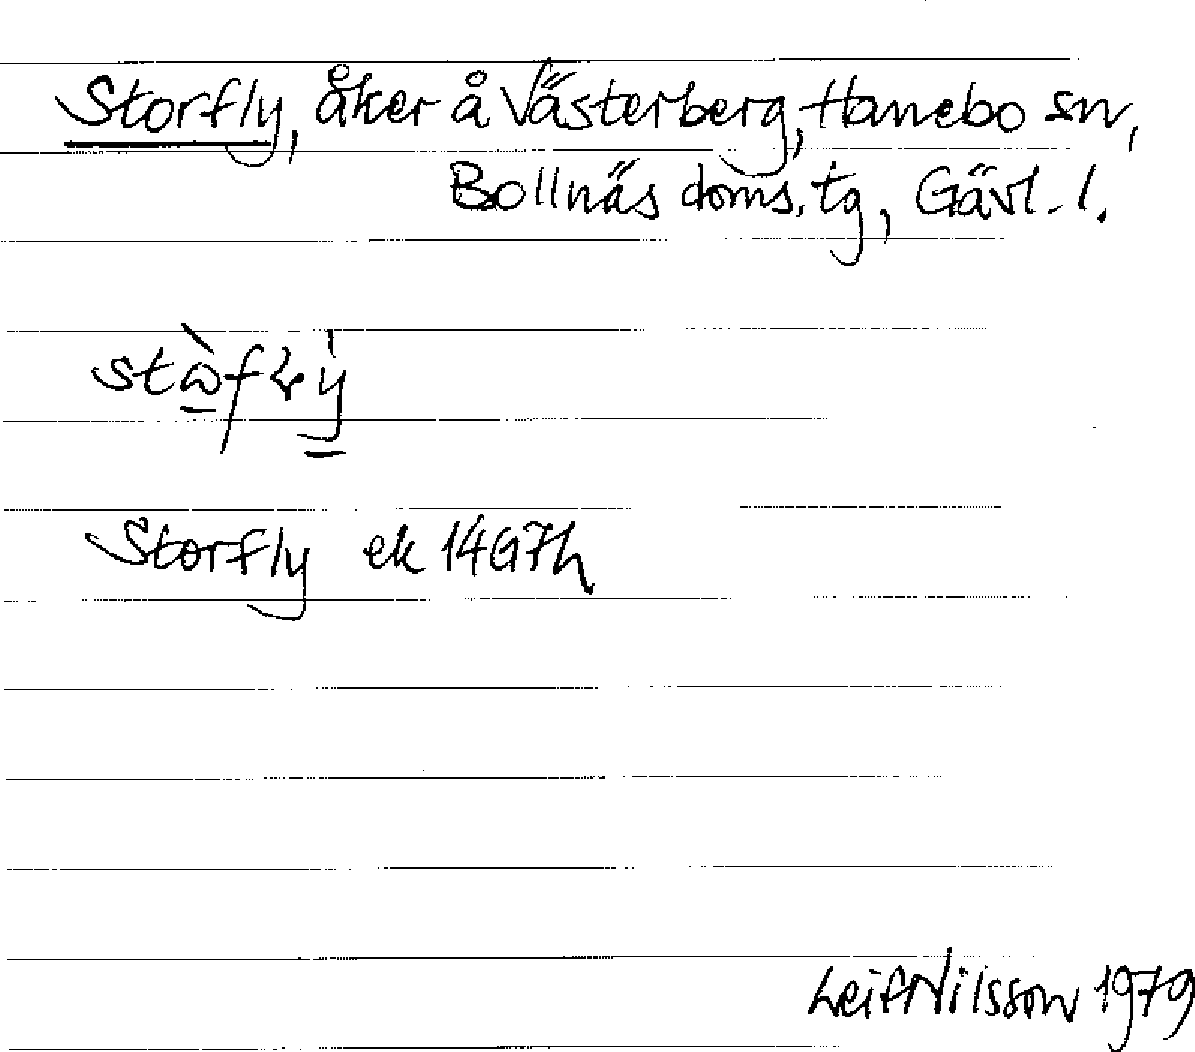 Storfly, åker å Västerberg, Hanebo sn,
Bollnäs doms. tg, Gävl. l.
Storfly ek 14G7h
Leif Nilsson 1979